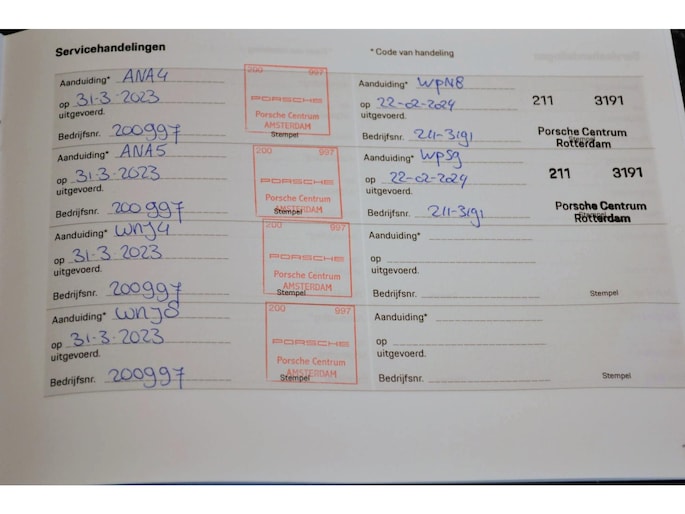 Servicehandelingen
* Code van handeling
Aanduiding* ANA4
op 31-3-2023
uitgevoerd.
Bedrijfsnr. 200997
200 997
PORSCHE
Porsche Centrum
AMSTERDAM
Stempel
Aanduiding* ANA5
op 31-3-2023
uitgevoerd.
Bedrijfsnr. 200997
200 997
PORSCHE
Porsche Centrum
AMSTERDAM
Stempel
Aanduiding* WNJ4
op 31-3-2023
uitgevoerd.
Bedrijfsnr. 200997
200 997
PORSCHE
Porsche Centrum
AMSTERDAM
Stempel
Aanduiding* WNJ8
op 31-3-2023
uitgevoerd.
Bedrijfsnr. 200997
200 997
PORSCHE
Porsche Centrum
AMSTERDAM
Stempel
Aanduiding* WPN8
op 22-02-2024
uitgevoerd.
Bedrijfsnr. 211-3191
211 3191
Porsche Centrum
Rotterdam
Stempel
Aanduiding* WPS9
op 22-02-2024
uitgevoerd.
Bedrijfsnr. 211-3191
211 3191
Porsche Centrum
Rotterdam
Stempel
Aanduiding*
op
uitgevoerd.
Bedrijfsnr.
Stempel
Aanduiding*
op
uitgevoerd.
Bedrijfsnr.
Stempel